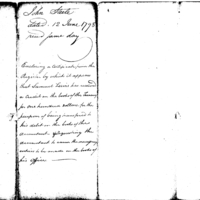 John Steele
dated 12 June, 1798
recd. same day
Enclosing a Certificate from the
Register by which it appears
that Samuel Lewis has received
a Credit on the books of the Treasury
for one hundred dollars for the
purpose of being transferred to
his debit on the books of this
department, & requesting the
accountant to cause the necessary
entries to be made on the books of
his office